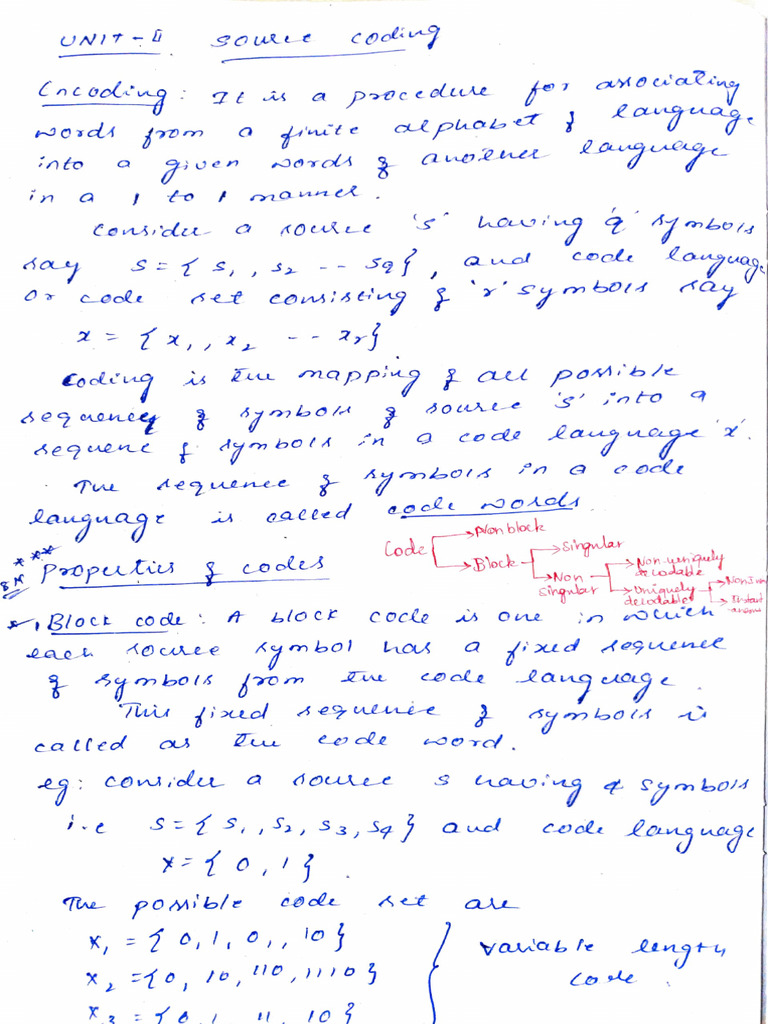 UNIT-II Source Coding
Encoding: It is a procedure for associating
words from a finite alphabet of language
into a given words of another language
in a 1 to 1 manner.
Consider a source 's' having 'q' symbols
say S={ S1, S2 -- Sq}, and code language
or code set consisting of 'r' symbols say
x = { x1, x2 -- xr}
Coding is the mapping of all possible
sequences of symbols of source 's' into a
sequenc of symbols in a code language 'x'.
The sequence of symbols in a code
language is called code words.
Code
Non block
Block
Singular
Non singular
Non-uniquely decodable
Uniquely decodable
*** Properties of codes
1, Block code: A block code is one in which
each source symbol has a fixed sequence
of symbols from the code language.
This fixed sequence of symbols is
called as the code word.
eg: consider a source s having 4 symbols
i.e S={ S1, S2, S3, S4} and code language
x={ 0, 1}.
The possible code set are
x1 = { 0, 1, 0,, 10}
x2 ={0, 10, 110, 1110}
x3 = {0, 1 11, 10}
variable length
code.